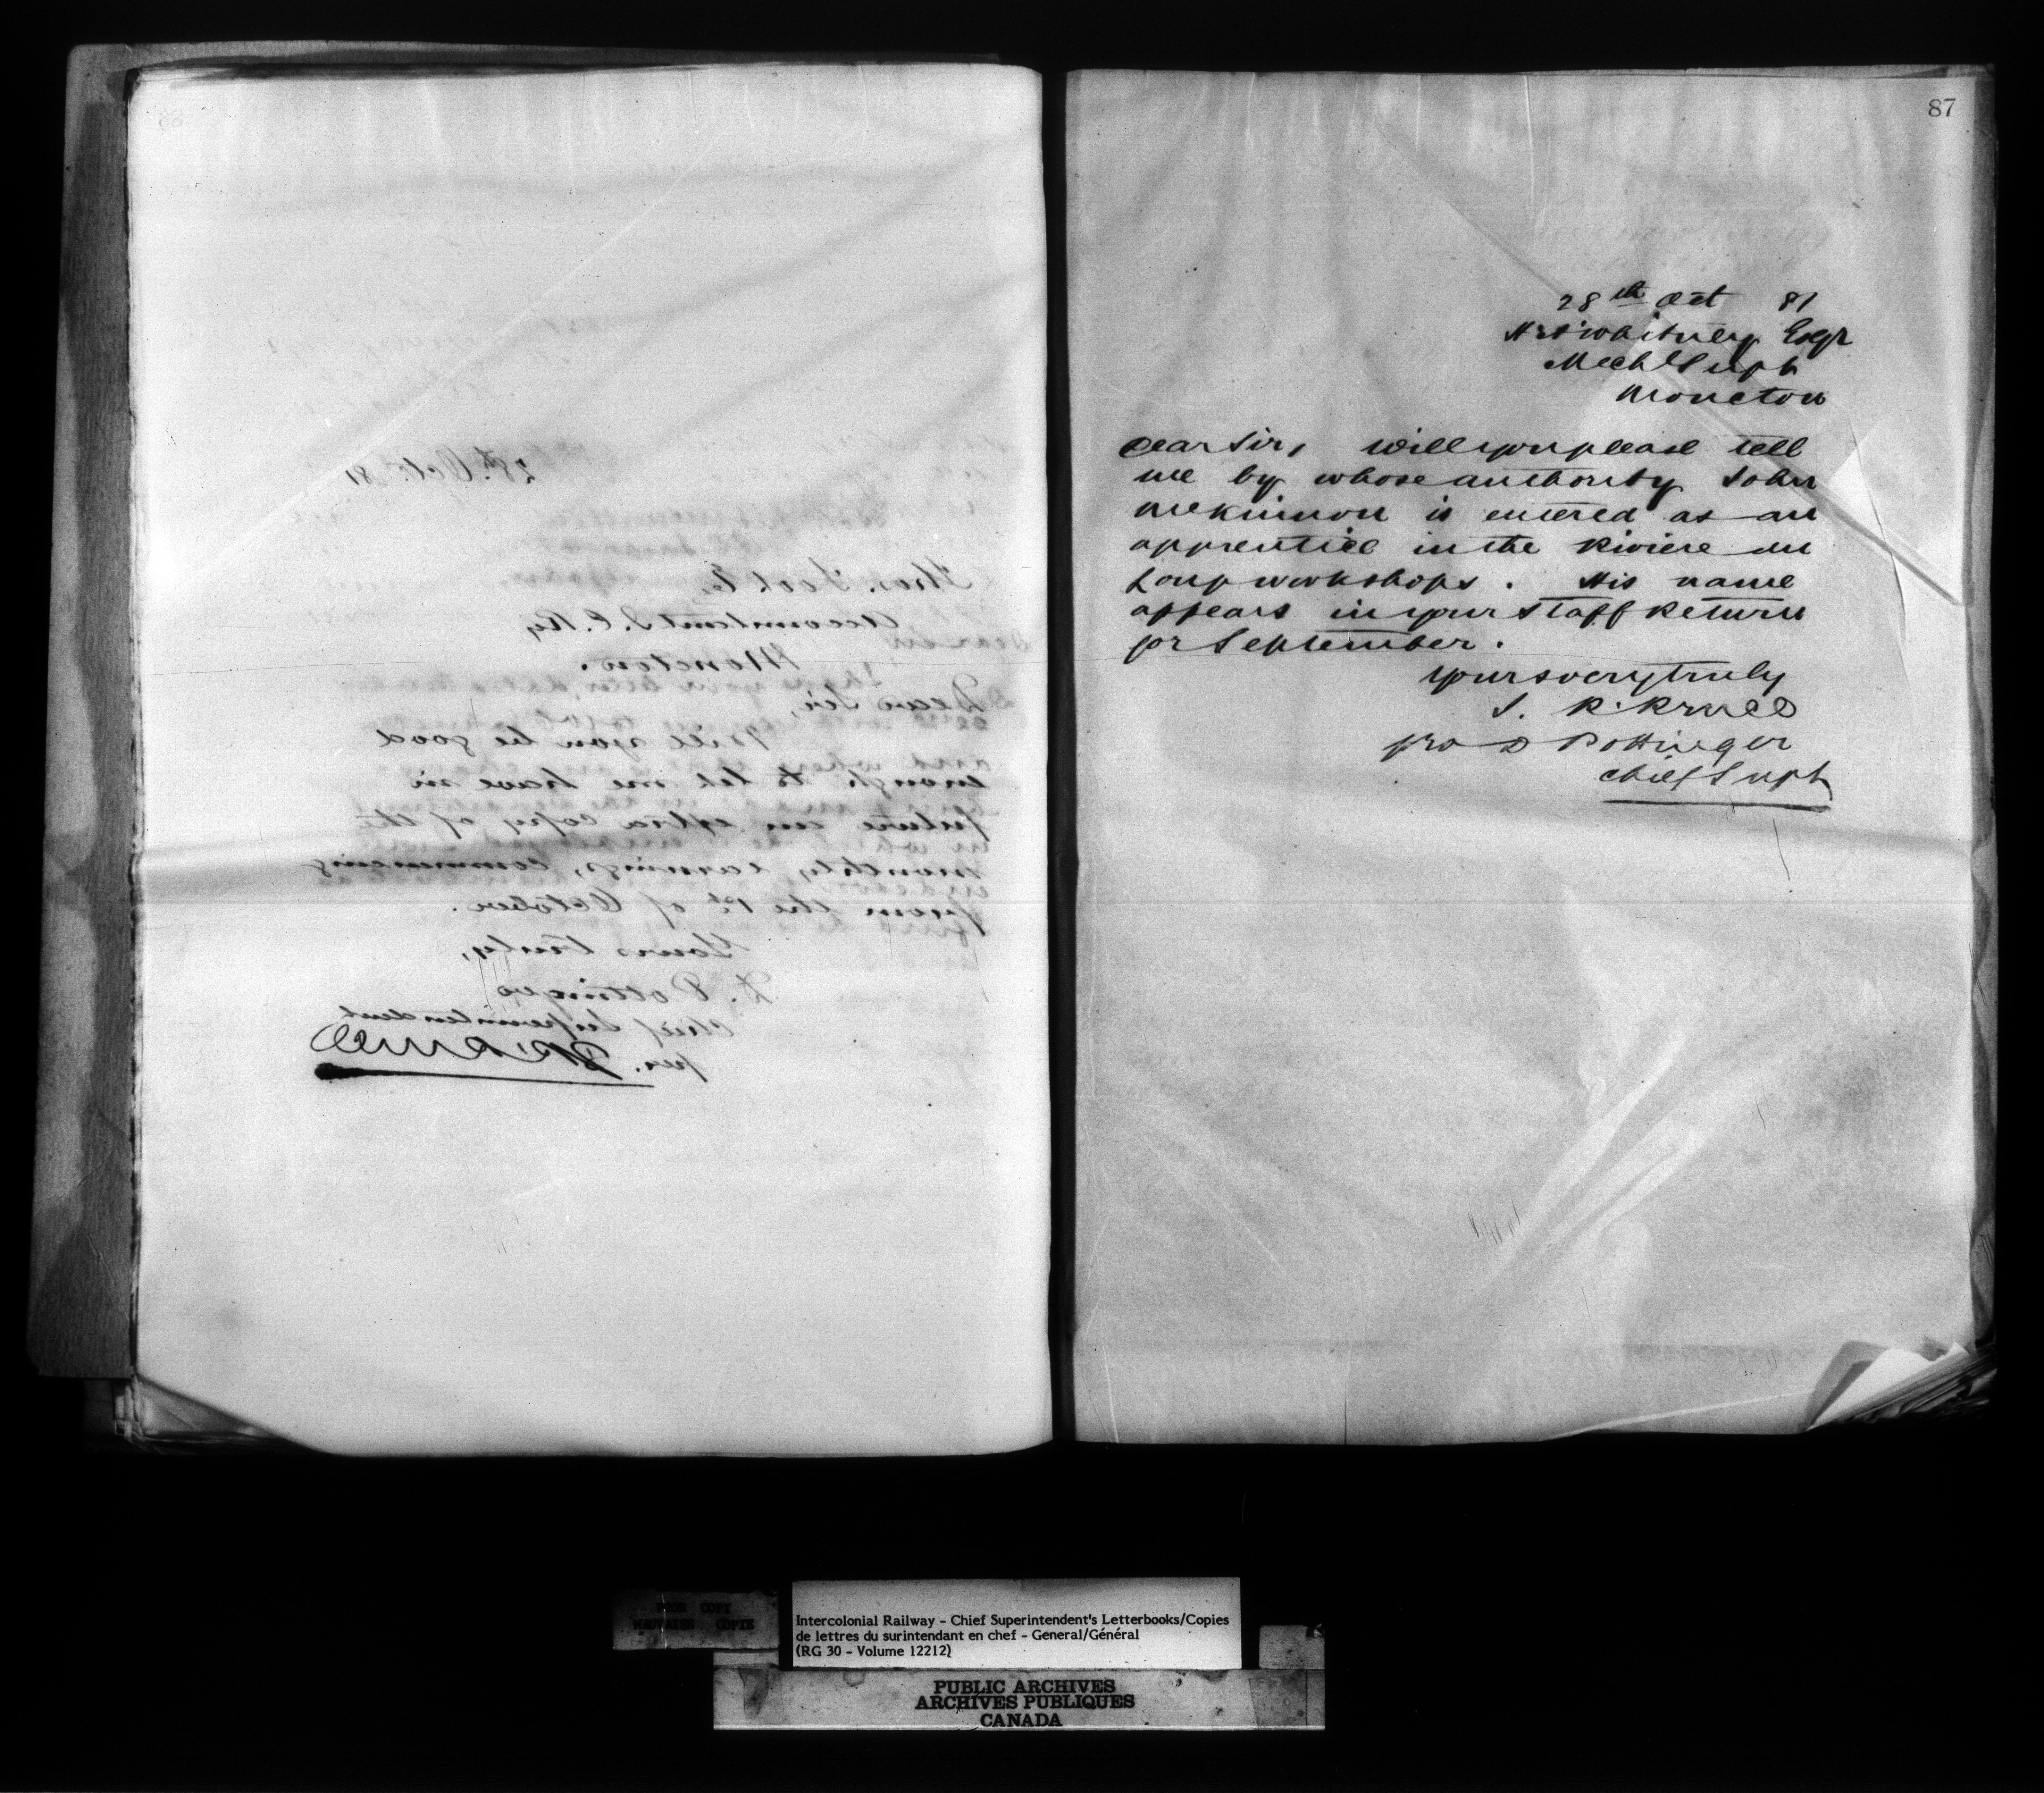 28th. Octo. 81
Thos. Foot Es
Accountant I. C. Ry
Moncton.
Dear Sir,
Will you be good
enough to let me have in
future an extra copy of the
monthly earnings, commencing
from the 1st of October.
Yours truly,
D. Pottinger
Chief Superintendent
per.
87
28th Oct 81
H A Whitney Esqr
Mechl Supt
Moncton
Dear Sir, Will you please tell
me by whose authority John
McKinnon is entered as an
apprentice in the Riviere du
Loup workshops. His name
appears in your Staff Return
for September.
Yours very truly
pro D Pottinger
Chief Supt
POOR COPY
MAUVAISE COPIE
Intercolonial Railway - Chief Superintendent's Letterbooks/Copies
de lettres du surintendant en chef - General/Général
(RG 30 - Volume 12212)
PUBLIC ARCHIVES
ARCHIVES PUBLIQUES
CANADA